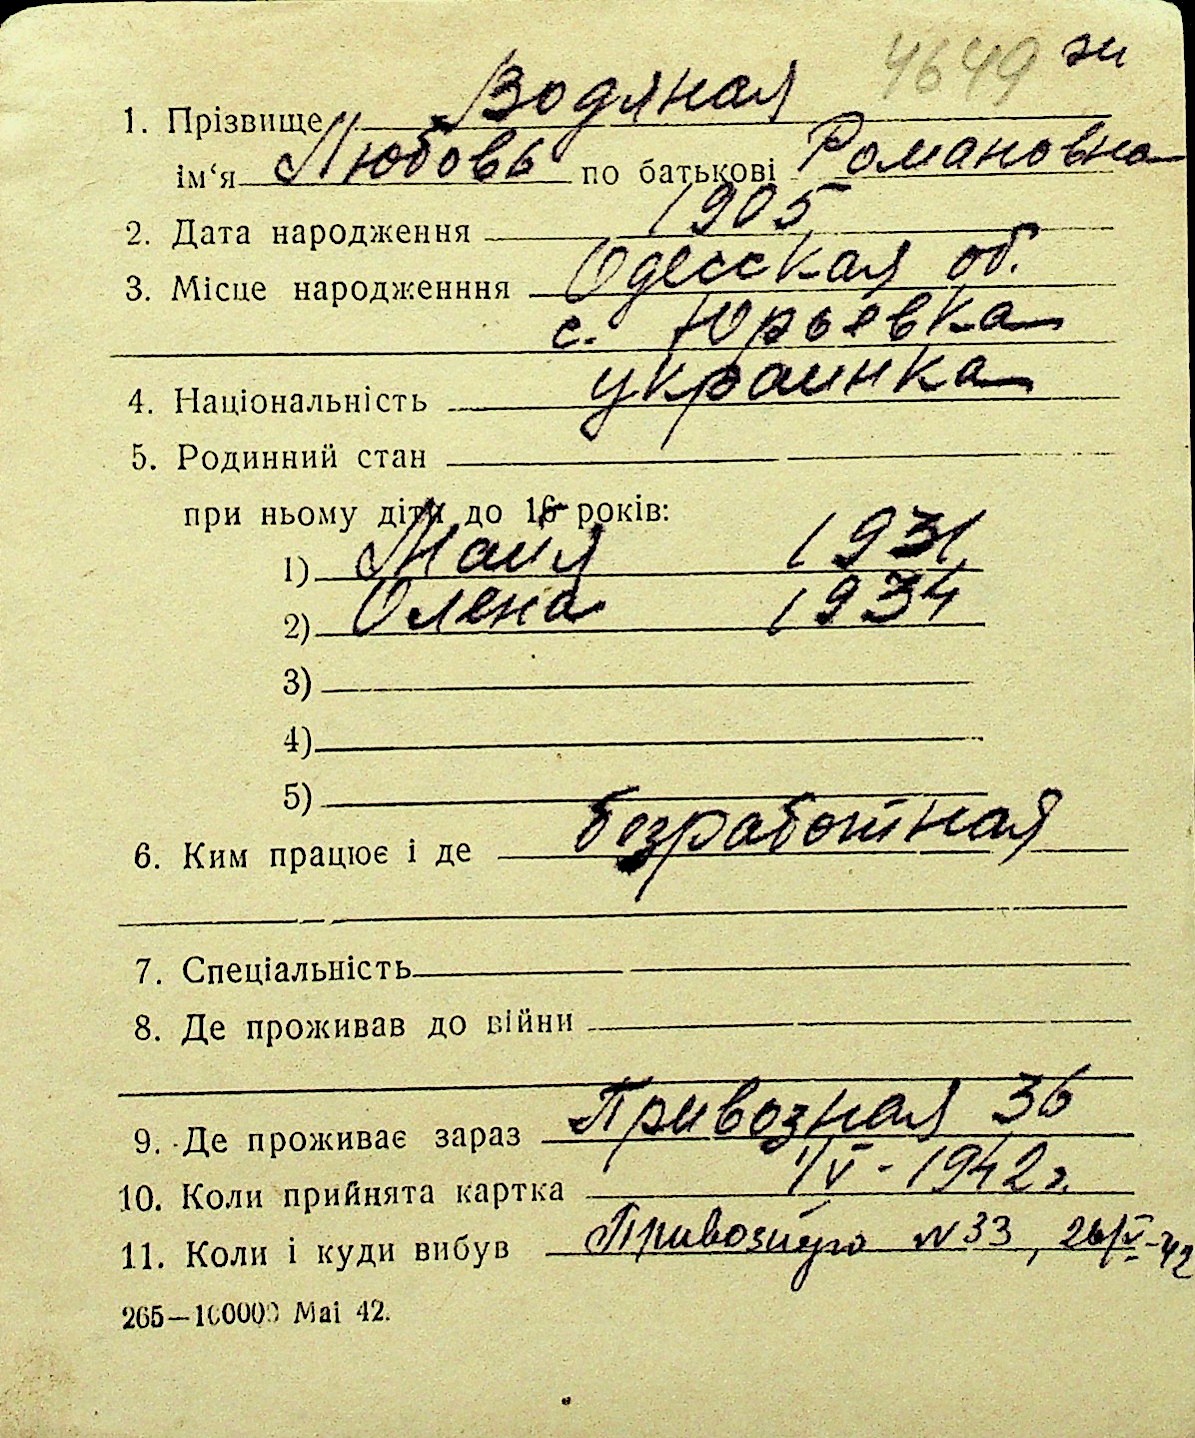 4649 зи
1. Прізвище Водяная
ім‘я Любовь по батькові Романовна
2. Дата народження 1905
3. Місце народженння Одесская об.
с. Юрьевка
4. Національність украинка
5. Родинний стан
при ньому діти до 16 років:
1) Майя 1931
2) Олена 1934
3)
4)
5)
6. Ким працює і де безработная
7. Спеціальність
8. Де проживав до війни
9. Де проживає зараз Привозная 36
10. Коли прийнята картка 1/V - 1942 г.
11. Коли і куди вибув Привозную №33, 26/V-42
265—100000 Mai 42.